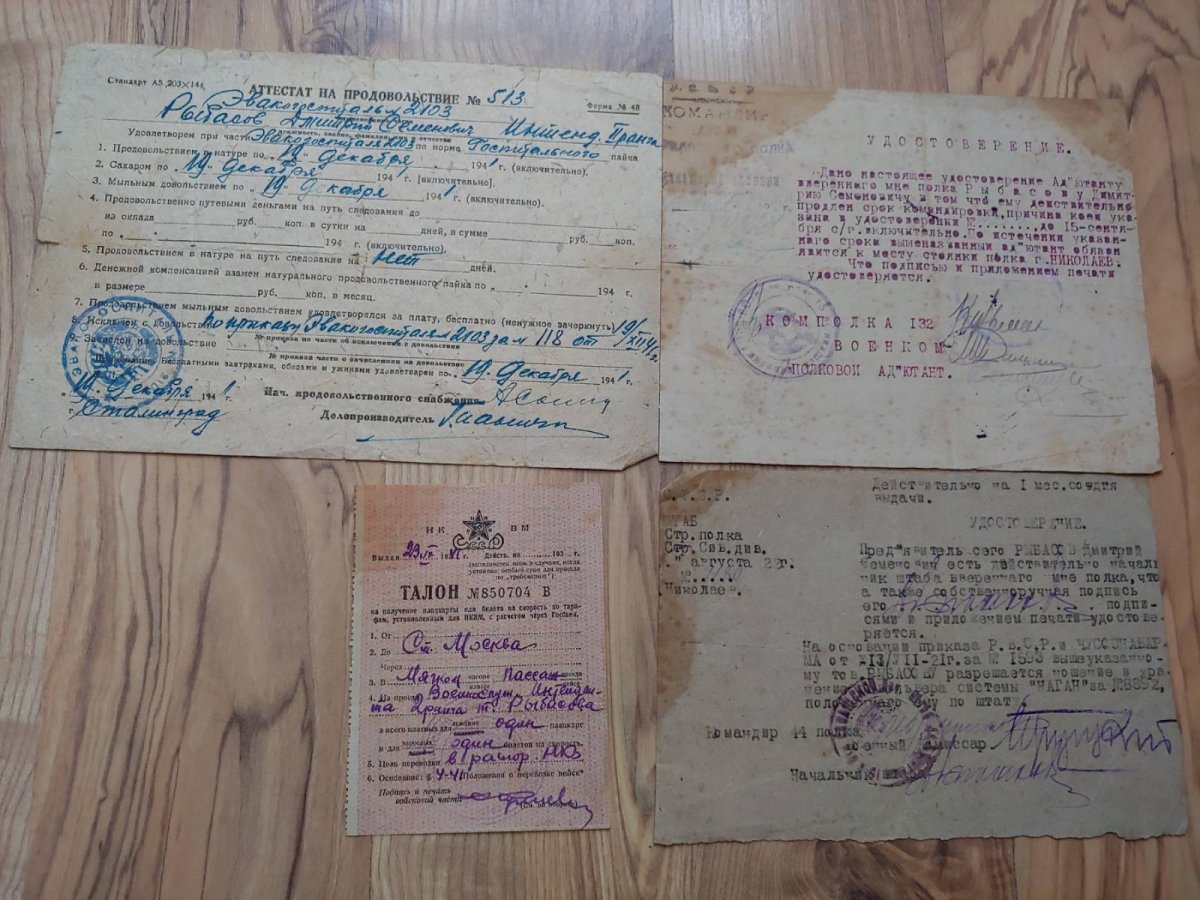 Стандарт А5 203×144
АТТЕСТАТ НА ПРОДОВОЛЬСТВИЕ № 513
Форма № 48
Эвакогоспиталь 2103
Рыбасов Дмитрий Семенович Интенд. 2 ранга
Удовлетворен при части Эвакогоспиталя 2103 по норме Госпитального пайка
1. Продовольствием в натуре по „19“ Декабря 1941 г. (включительно).
2. Сахаром по „19“ Декабря 194 г. (включительно).
3. Мыльным довольствием по „19“ Декабря 1941 г. (включительно).
4. Продовольственно путевыми деньгами на путь следования до
из оклада руб. коп. в сутки на дней, в сумме руб. коп.
по „ “ 194 г. (включительно).
5. Продовольствием в натуре на путь следования на нет дней.
6. Денежной компенсацией взамен натурального продовольственного пайка по „ “ 194 г.
в размере руб. коп. в месяц.
7. Продовольствием мыльным довольствием удовлетворялся за плату, бесплатно (ненужное зачеркнуть)
8. Исключен с довольствия по приказу Эвакогоспиталя 2103 за № 118 от 19/XII 41 г.
№ приказа по части об исключении с довольствия
9. Зачислен на довольствие
№ приказа по части о зачислении на довольствие
Бесплатными завтраками, обедами и ужинами удовлетворен по „19“ Декабря 1941 г.
„19“ Декабря 1941 г.
г. Сталинград
Нач. продовольственного снабжения
Делопроизводитель
УДОСТОВЕРЕНИЕ.
Дано настоящее удостоверение Ад"ютанту
вверенного мне полка Рыбасову Димит-
рию Семеновичу в том что ему действительно
продлен срок командировки, причина коей ука
зана в удостоверении №......., до 15-сентя-
бря с/г. включительно. По истечении указан-
наго срока вышеназванный ад"ютант обязан
явится к месту стоянки полка г. НИКОЛАЕВ.
Что подписью и приложением печати
удостоверяется.
КОМПОЛКА 132
ВОЕНКОМ
ПОЛКОВОЙ АД"ЮТАНТ.
НК ВМ
СССР
Выдан 23/IX 1941 г. Действ. по 193 г.
(заполняется лишь в случаях, когда
установлен особый срок для проезда
по „требованию“)
ТАЛОН № 850704 В
на получение плацкарты или билета на скорость по тари-
фам, установленным для НКВМ, с расчетом через Госбанк.
1. От
2. До Ст. Москва
Через
3. В Мягком вагоне Пассаж поезда
4. На проезд Военнослуж. Интендан-
та 2 ранга т. Рыбасова
всего платных для один плацкарт
и для взрослых один билетов на скорость.
5. Цель перевозки в распор. НКО
6. Основание: § 4-41 Положения о перевозке войск
Подпись и печать
войсковой части
Действительно на 1 мес. со дня
выдачи.
ШТАБ
Стр. полка
Стр. Сив. див.
августа 21г.
Николаев.
УДОСТОВЕРЕНИЕ.
Пред"явитель сего РЫБАСОВ Дмитрий
Семенович есть действительно началь
ник штаба вверенного мне полка, что
а также собственноручная подпись
его подпи-
сями и приложением печати удосто-
веряется.
На основании приказа Р.В.С.Р. и ЧУСОСНАБАР-
МА от XIII/VII-21г. за № 1593 вышеуказанно-
му тов. РЫБАСОВУ разрешается ношение и хра-
нение револьвера системы "НАГАН" за №8692,
положенного ему по штату.
Командир 44 полка
Военный комиссар
Начальник штаба